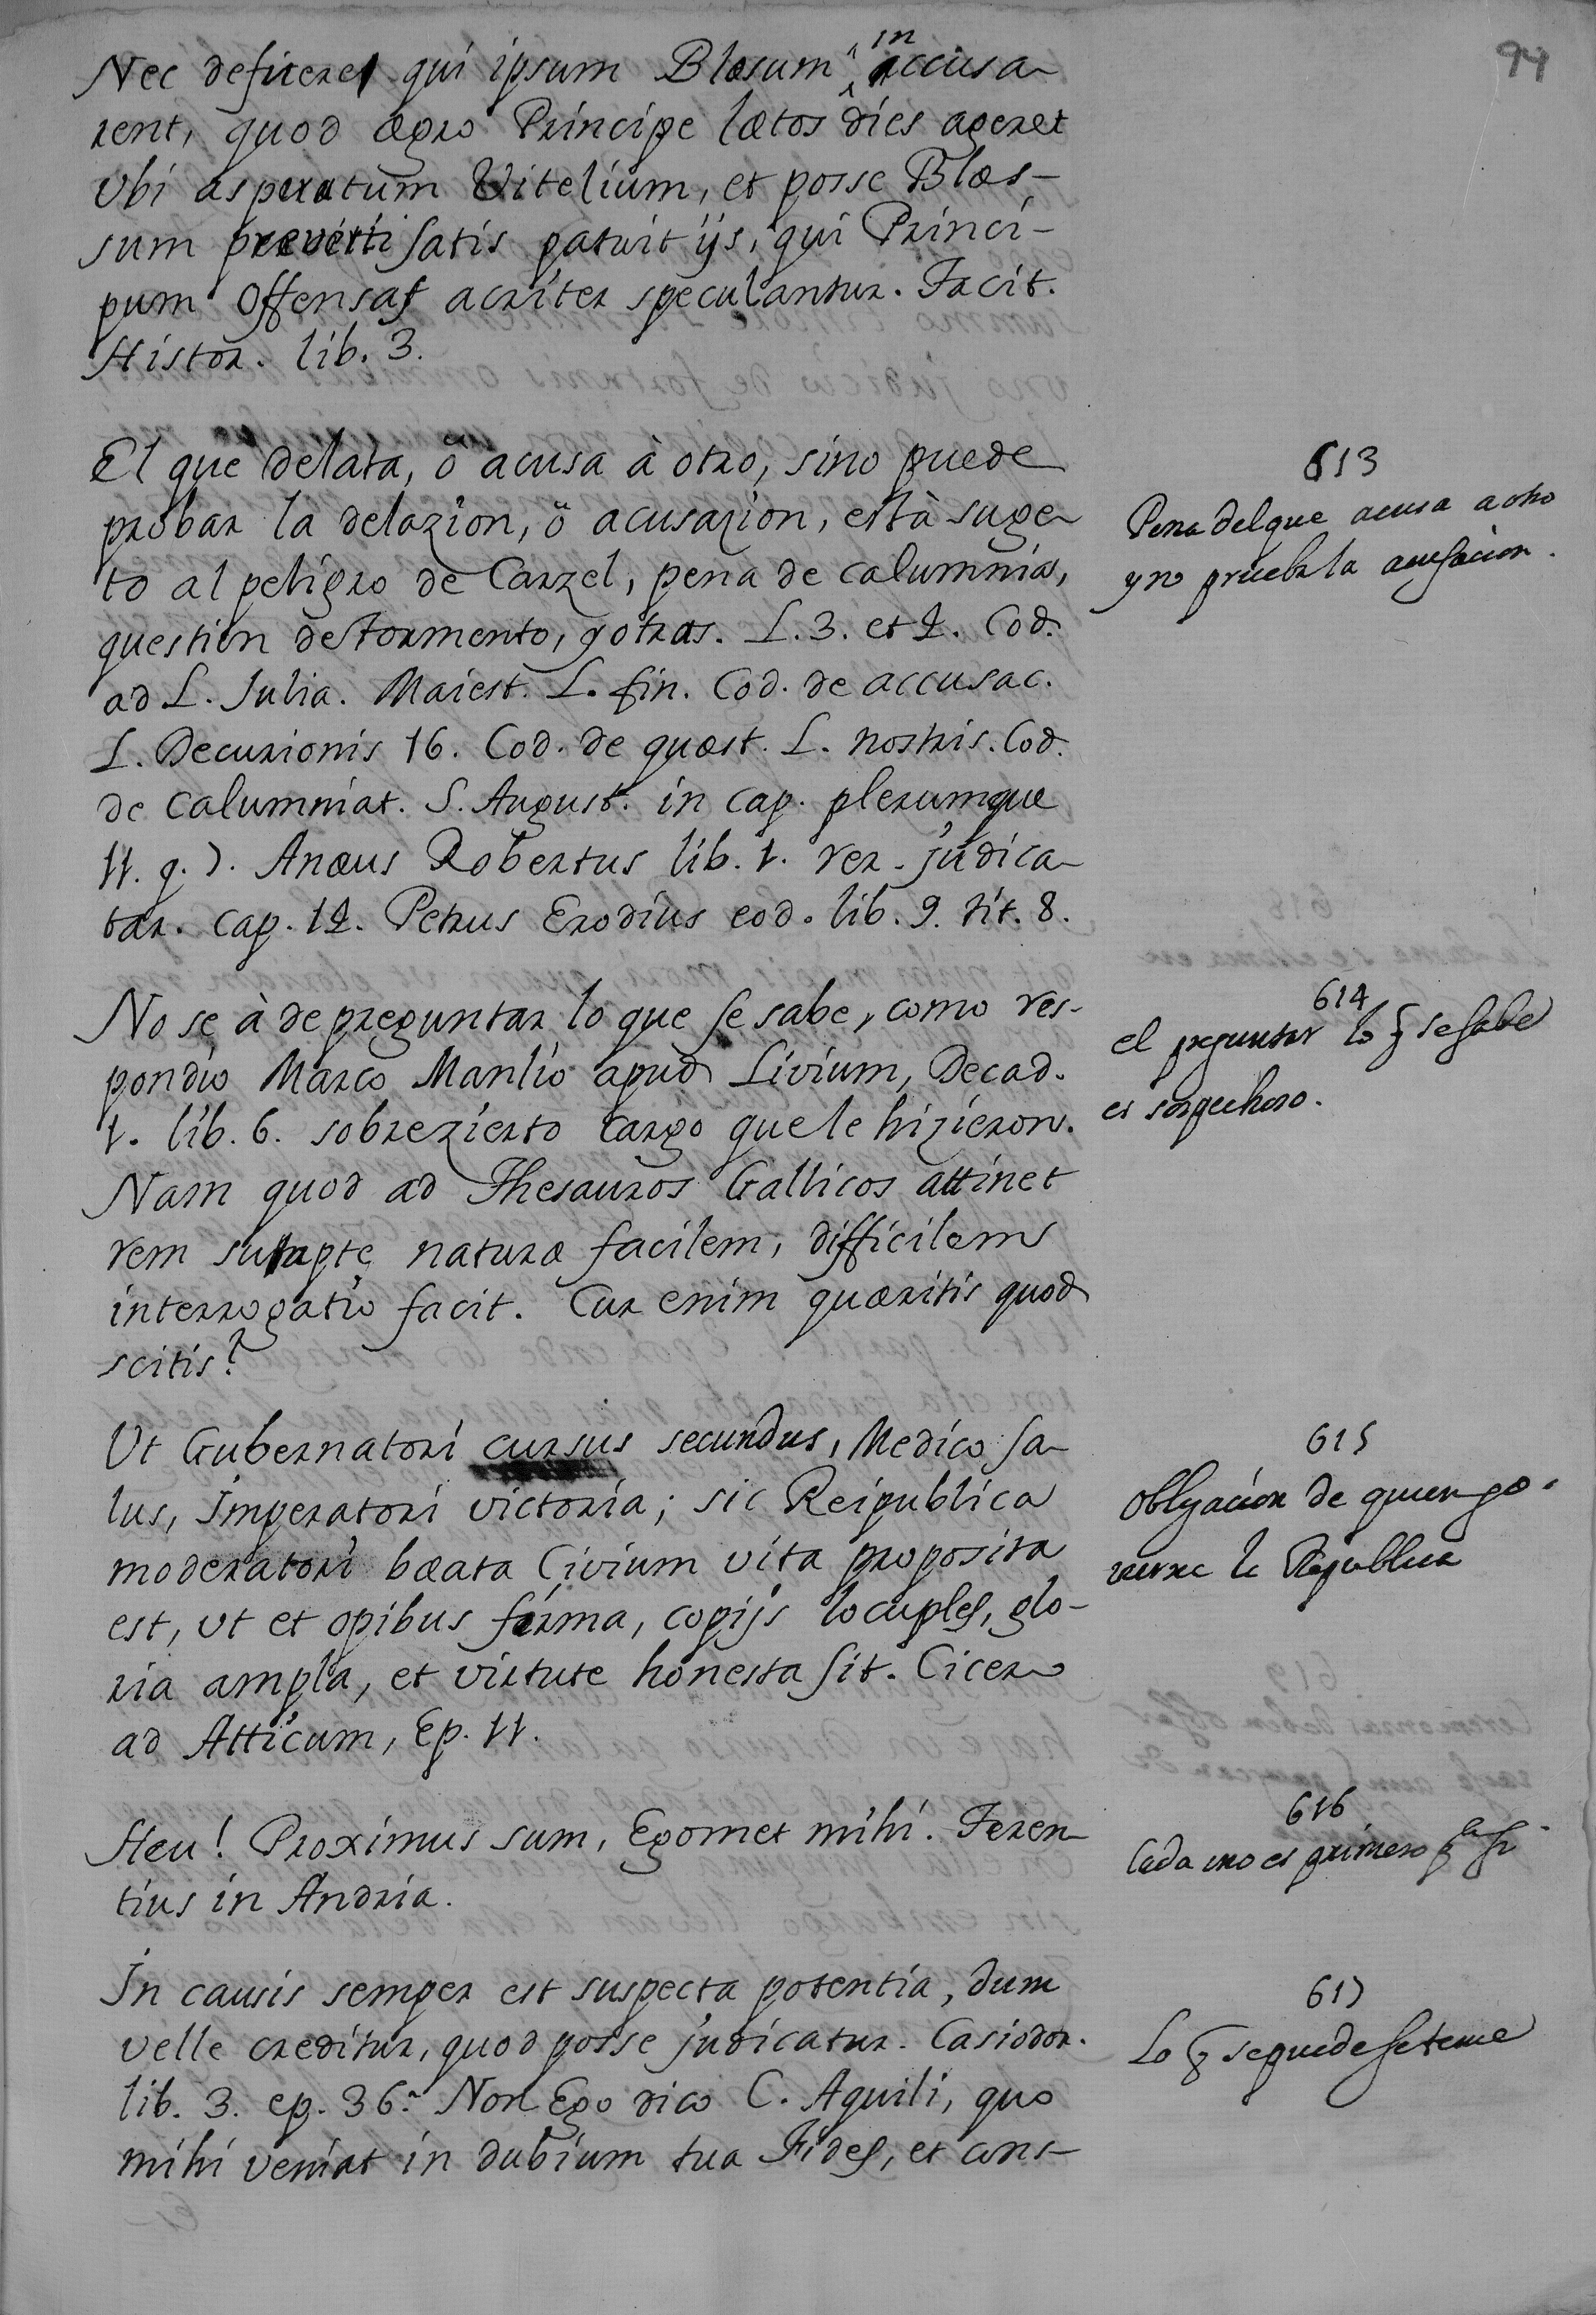 94
Nec deficeret qui ipsum Blesum in accusa-
rent, quod ægro Principe lætos dies ageret
Vbi asperatum Vitelium, et posse Blæs-
sum præverti satis patuit ijs, qui Princi-
pum Offensas acriter speculantur. Tacit.
Histor. lib. 3.
El que delata, ö acusa à otro, sino puede
probar la delazion, ö acusazion, està suge-
to al peligro de Carzel, pena de calumnia,
question de tormento, y otras. L. 3. et 2. Cod.
ad L. Julia. Maiest. L. fin. Cod. de accusac.
L. Decurionis 16. Cod. de quæst. L. nostris. Cod.
de calumniat. S. August. in cap. plerumque
11. q. 7. Anæus Robertus lib. 1. rer. judica-
tar. cap. 12. Petrus Erodius eod. lib. 9. tit. 8.
613
Pena del que acusa a otro
y no prueba la acusacion.
No se à de preguntar lo que se sabe, como res-
pondio Marco Manlio apud Livium, Decad.
1. lib. 6. sobre zierto cargo que le hizieron.
Nam quod ad Thesauros Gallicos attinet
rem suapte naturæ facilem, difficilem
interrogatio facit. Cur enim quæritis quod
scitis?
614
el preguntar lo q se sabe
es sospechoso.
Ut Gubernatori cursus secundus, Medico sa-
lus, Imperatori victoria; sic Reipublica
moderatori bæata Civium vita proposita
est, ut et opibus firma, copijs locuples, glo-
ria ampla, et virtute honesta sit. Cicero
ad Atticum, Ep. 11.
615
Obligacion de quien go-
vierne la Republica
Heu! Proximus sum, Egomet mihi. Teren-
tius in Andria.
616
Cada uno es primero
In causis semper est suspecta potentia, dum
velle creditur, quod posse judicatur. Casiodor.
lib. 3. ep. 36. Non Ego dico C. Aquili, quo
mihi veniat in dubium tua Fides, et cons-
617
Lo q se puede se teme